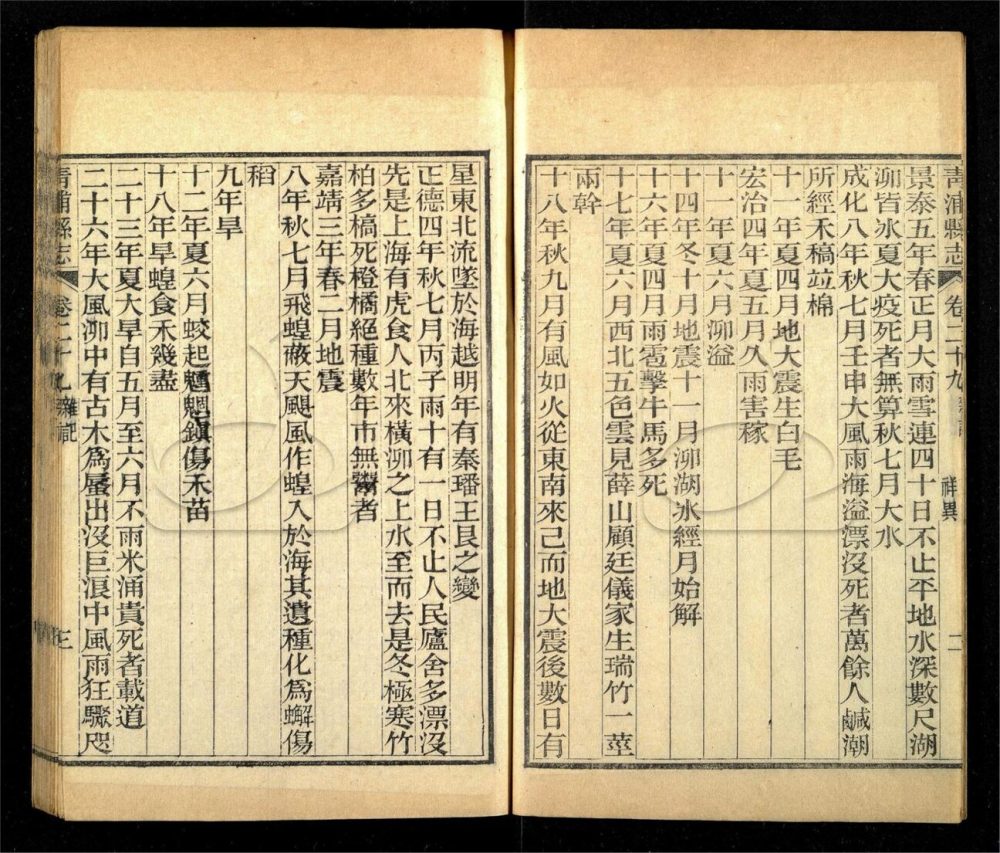 青浦縣志 卷二十九 雜記 祥異 二
景泰五年春正月大雨雪連四十日不止平地水深數尺湖
泖皆冰夏大疫死者無算秋七月大水
成化八年秋七月壬申大風雨海溢漂沒死者萬餘人鹹潮
所經禾稿竝棉
十一年夏四月地大震生白毛
宏治四年夏五月久雨害稼
十一年夏六月泖溢
十四年冬十月地震十一月泖湖冰經月始解
十六年夏四月雨雹擊牛馬多死
十七年夏六月西北五色雲見薛山顧廷儀家生瑞竹一莖
兩幹
十八年秋九月有風如火從東南來已而地大震後數日有
星東北流墜於海越明年有秦璠王艮之變
正德四年秋七月丙子雨十有一日不止人民廬舍多漂沒
先是上海有虎食人北來橫泖之上水至而去是冬極寒竹
柏多槁死橙橘絕種數年市無鬻者
嘉靖三年春二月地震
八年秋七月飛蝗蔽天颶風作蝗入於海其遺種化爲蠏傷
稻
九年旱
十二年夏六月蛟起魑魍鎮傷禾苗
十八年旱蝗食禾幾盡
二十三年夏大旱自五月至六月不雨米涌貴死者載道
二十六年大風泖中有古木爲蜃出沒巨浪中風雨狂驟咫
青浦縣志 卷二十九 雜記 三